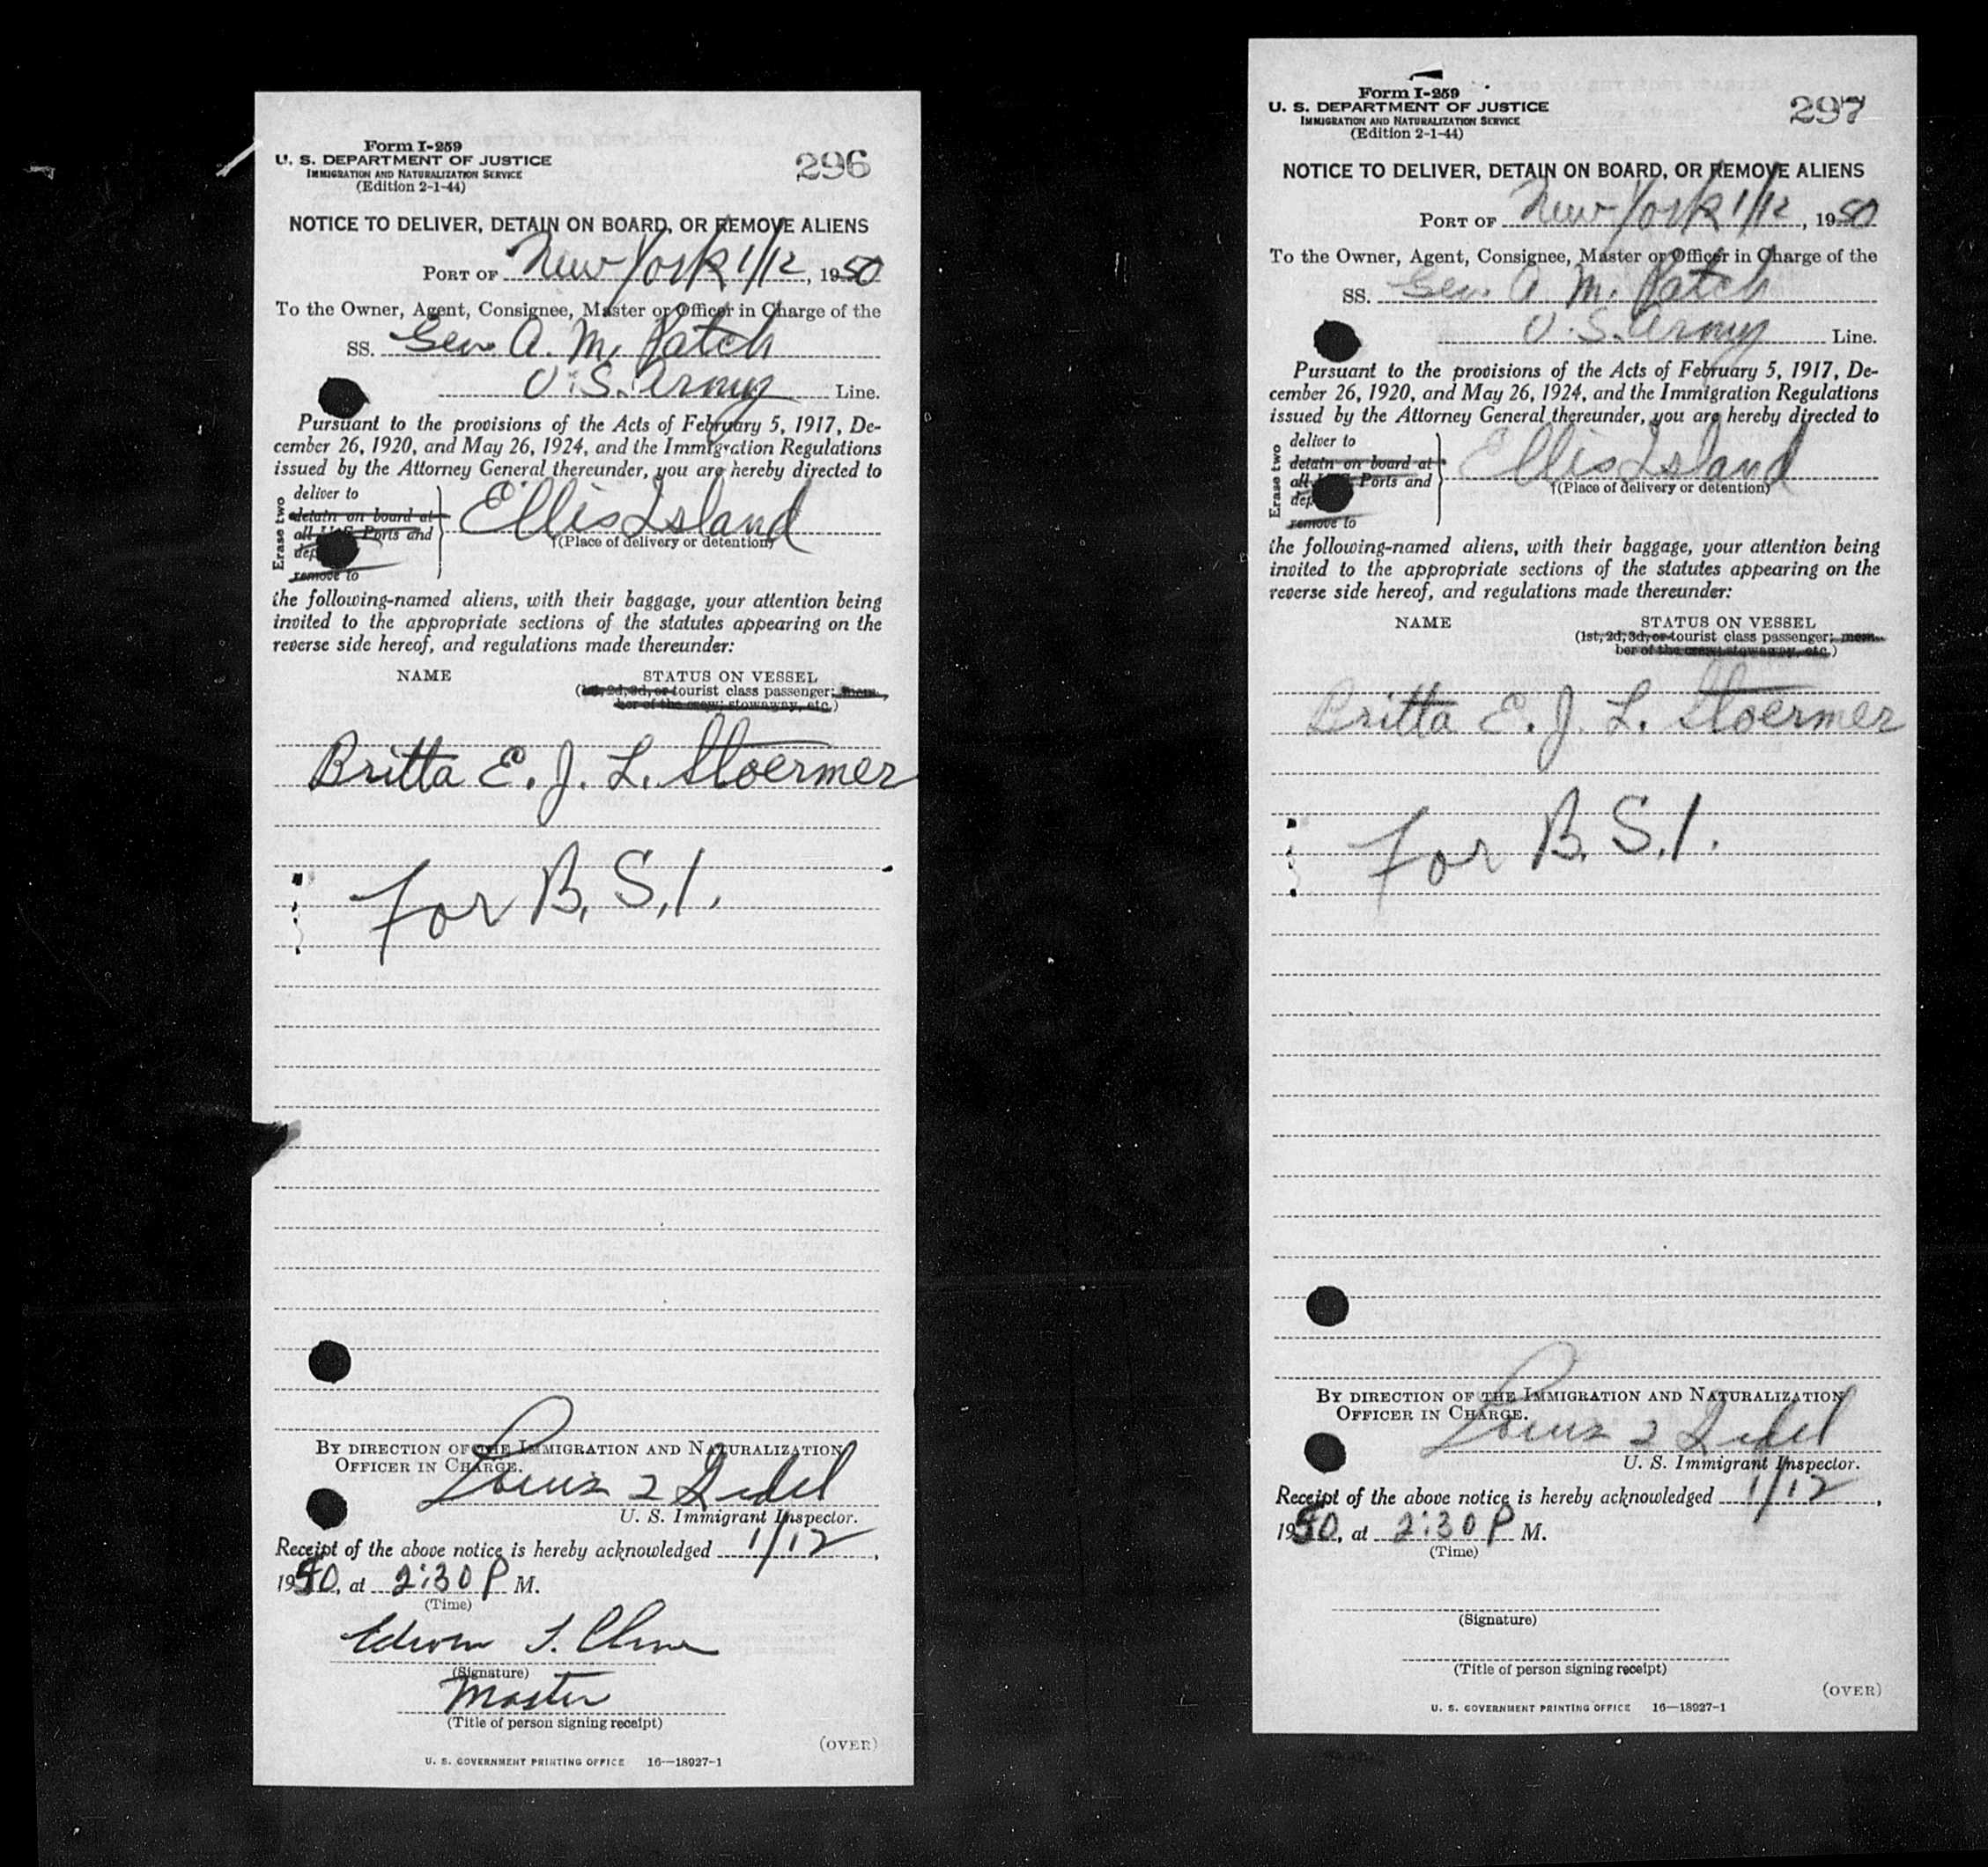 Form I-259
U. S. DEPARTMENT OF JUSTICE
IMMIGRATION AND NATURALIZATION SERVICE
(Edition 2-1-44)
296
NOTICE TO DELIVER, DETAIN ON BOARD, OR REMOVE ALIENS
PORT OF New York 1/12, 1950
To the Owner, Agent, Consignee, Master or Officer in Charge of the
SS. Gen. A. M. Patch
U.S. Army Line.
Pursuant to the provisions of the Acts of February 5, 1917, De-
cember 26, 1920, and May 26, 1924, and the Immigration Regulations
issued by the Attorney General thereunder, you are hereby directed to
Erase two
deliver to
detain on board at
all U.S. Ports and
remove to
Ellis Island
†(Place of delivery or detention)
the following-named aliens, with their baggage, your attention being
invited to the appropriate sections of the statutes appearing on the
reverse side hereof, and regulations made thereunder:
NAME STATUS ON VESSEL
(1st, 2d, 3d, or tourist class passenger; mem-
ber of the crew; stowaway, etc.)
Britta E. J. L. Stoermer
For B. S. I.
BY DIRECTION OF THE IMMIGRATION AND NATURALIZATION
OFFICER IN CHARGE.
Louis
U. S. Immigrant Inspector.
Receipt of the above notice is hereby acknowledged 1/12,
1950, at 2:30 P M.
(Time)
(Signature)
Master
(Title of person signing receipt)
(OVER)
U. S. GOVERNMENT PRINTING OFFICE 16—18927-1
Form I-259
U. S. DEPARTMENT OF JUSTICE
IMMIGRATION AND NATURALIZATION SERVICE
(Edition 2-1-44)
297
NOTICE TO DELIVER, DETAIN ON BOARD, OR REMOVE ALIENS
PORT OF New York 1/12, 1950
To the Owner, Agent, Consignee, Master or Officer in Charge of the
SS. Gen. A. M. Patch
U.S. Army Line.
Pursuant to the provisions of the Acts of February 5, 1917, De-
cember 26, 1920, and May 26, 1924, and the Immigration Regulations
issued by the Attorney General thereunder, you are hereby directed to
Erase two
deliver to
detain on board at
all Ports and
remove to
Ellis Island
†(Place of delivery or detention)
the following-named aliens, with their baggage, your attention being
invited to the appropriate sections of the statutes appearing on the
reverse side hereof, and regulations made thereunder:
NAME STATUS ON VESSEL
(1st, 2d, 3d, or tourist class passenger; mem-
ber of the crew; stowaway, etc.)
Britta E. J. L. Stoermer
For B. S. I.
BY DIRECTION OF THE IMMIGRATION AND NATURALIZATION
OFFICER IN CHARGE.
Louis
U. S. Immigrant Inspector.
Receipt of the above notice is hereby acknowledged 1/12,
1950, at 2:30 P M.
(Time)
(Signature)
(Title of person signing receipt)
(OVER)
U. S. GOVERNMENT PRINTING OFFICE 16—18927-1